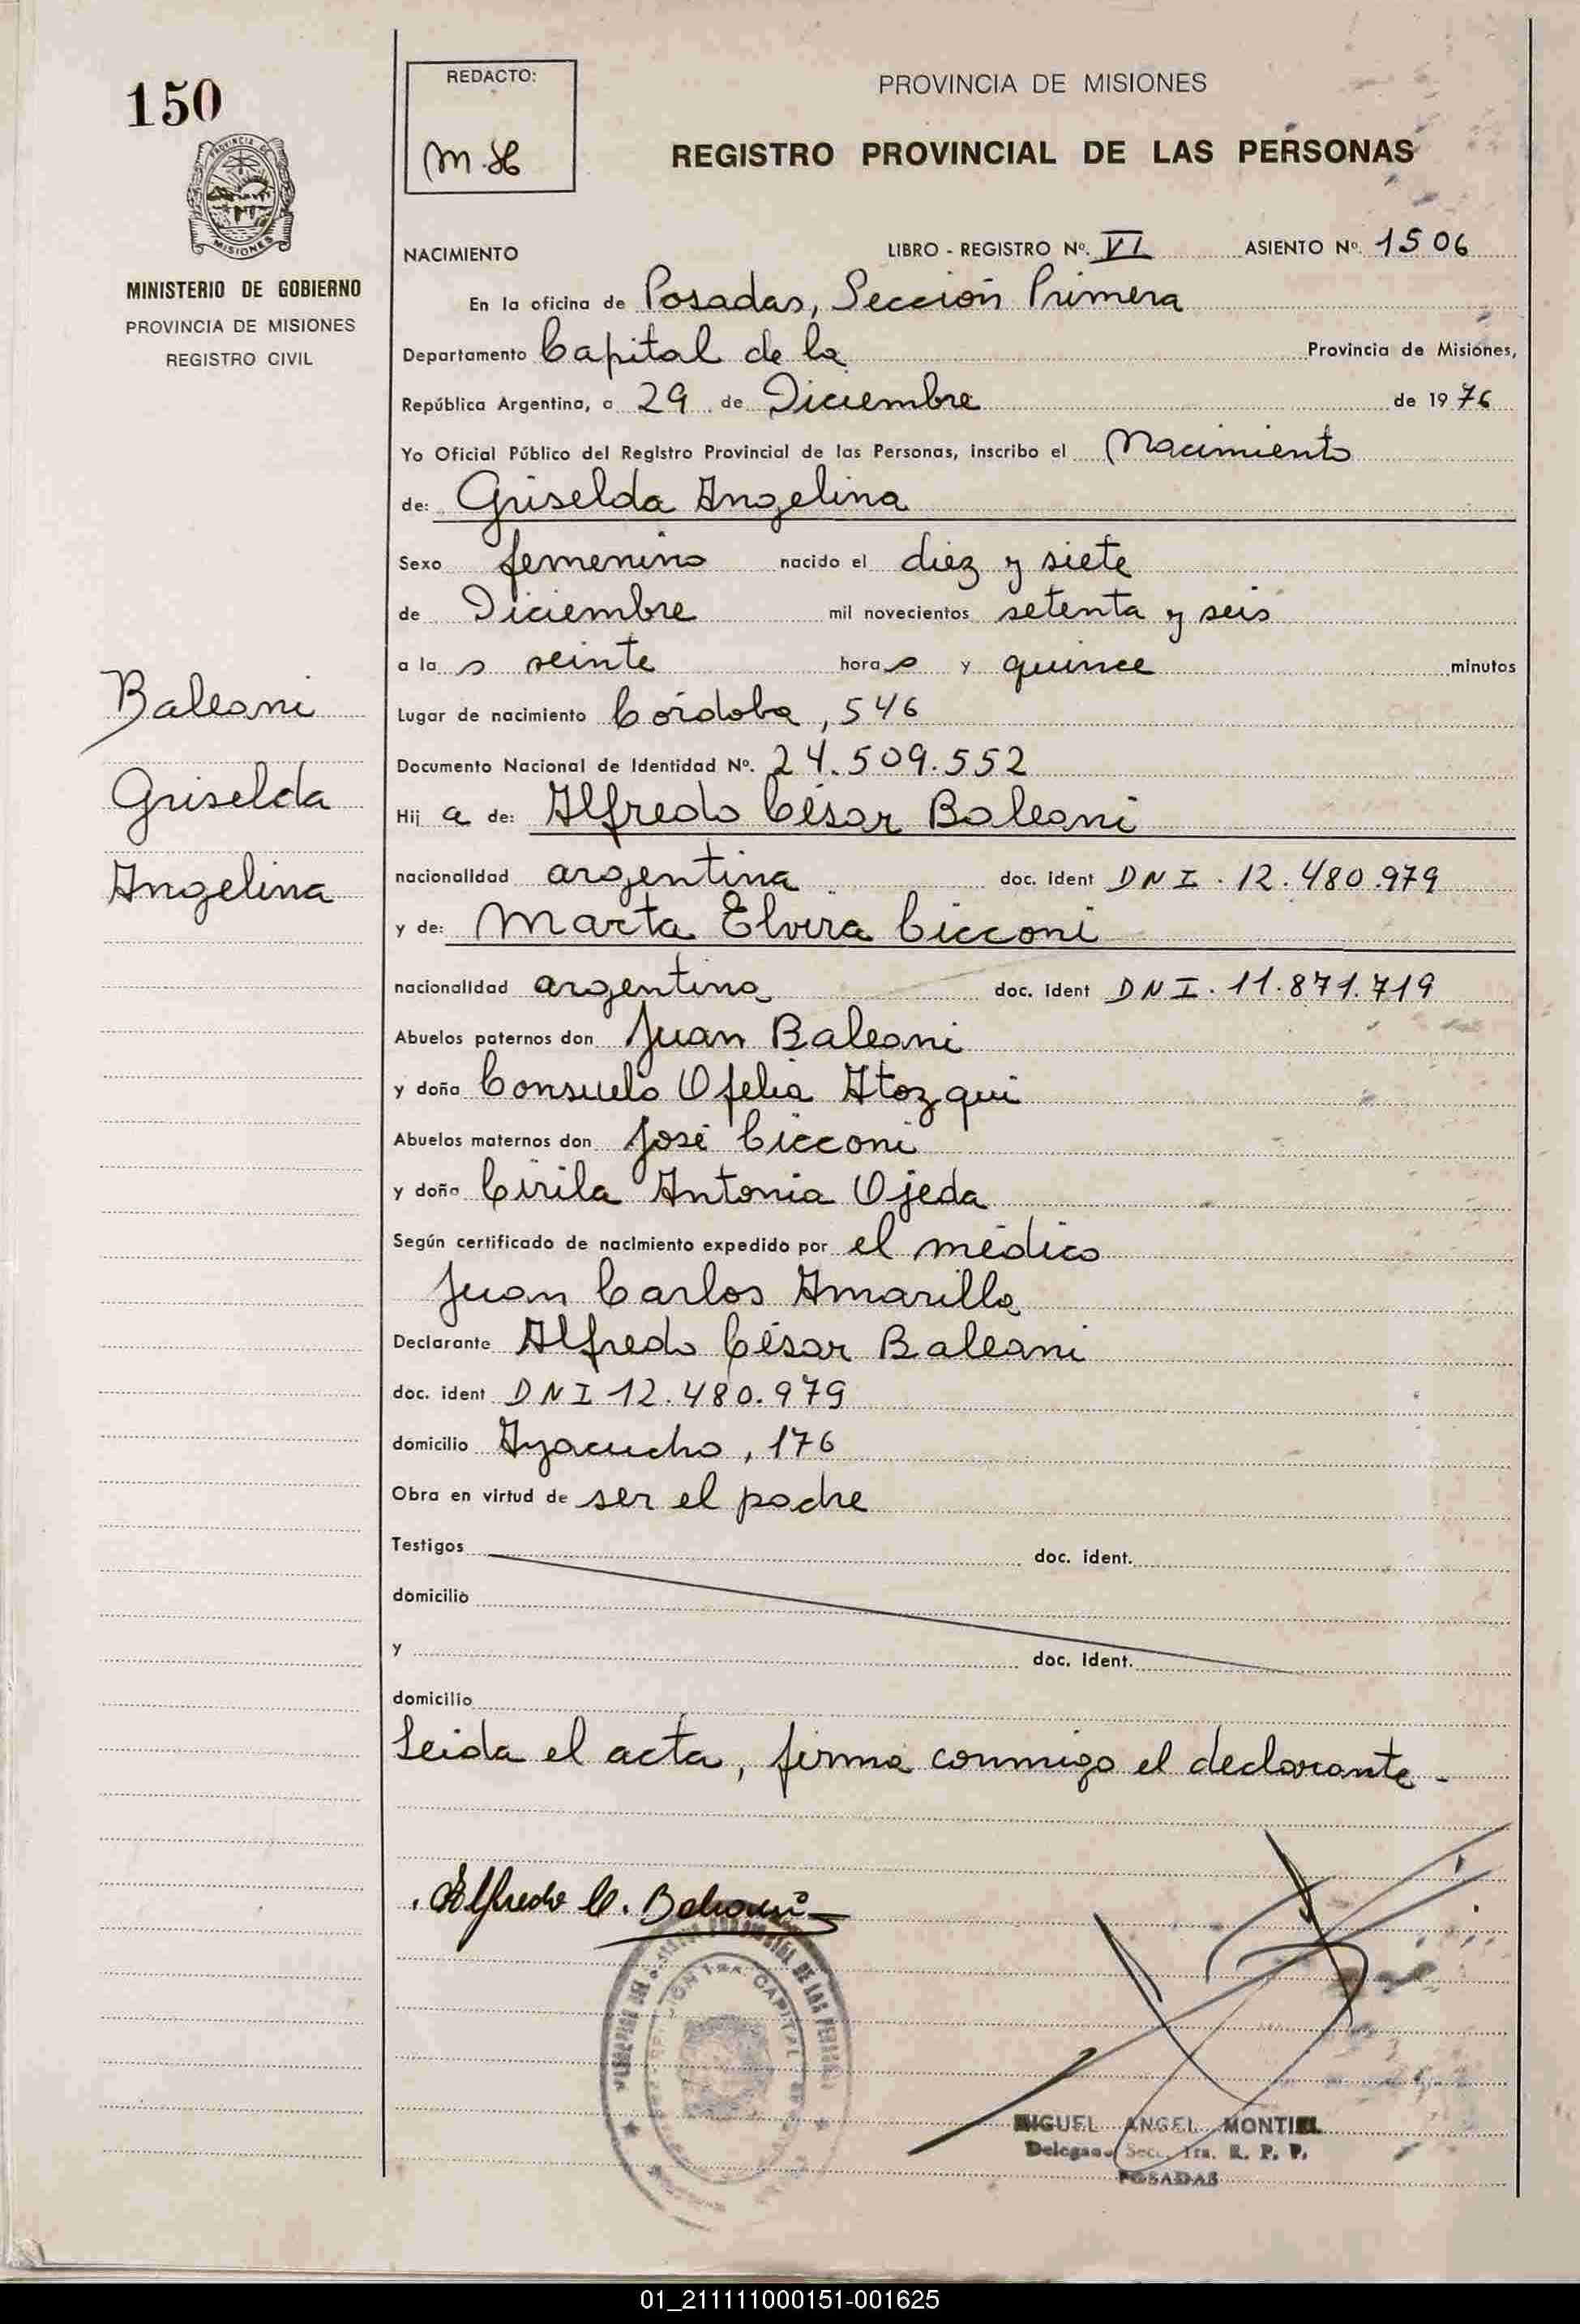 150
PROVINCIA DE MISIONES
MINISTERIO DE GOBIERNO
PROVINCIA DE MISIONES
REGISTRO CIVIL
REDACTO:
M.H
PROVINCIA DE MISIONES
REGISTRO PROVINCIAL DE LAS PERSONAS
NACIMIENTO LIBRO - REGISTRO Nº. VI ASIENTO Nº. 1506
En la oficina de Posadas, Sección Primera
Departamento Capital de la Provincia de Misiones,
República Argentina, a 29 de Diciembre de 1976
Yo Oficial Público del Registro Provincial de las Personas, inscribo el Nacimiento
de: Griselda Angelina
Sexo femenino nacido el diez y siete
de Diciembre mil novecientos setenta y seis
a la s veinte hora s y quince minutos
Lugar de nacimiento Córdoba, 546
Documento Nacional de Identidad Nº. 24.509.552
Hij a de: Alfredo César Baleani
nacionalidad argentina doc. ident DNI. 12.480.979
y de: Marta Elvira Cicconi
nacionalidad argentina doc. ident DNI. 11.871.719
Abuelos paternos don Juan Baleani
y doña Consuelo Ofelia Atozqui
Abuelos maternos don José Cicconi
y doña Cirila Antonia Ojeda
Según certificado de nacimiento expedido por el médico
Juan Carlos Amarilla
Declarante Alfredo César Baleani
doc. ident DNI 12.480.979
domicilio Ayacucho, 176
Obra en virtud de ser el padre
Testigos doc. ident.
domicilio
y doc. ident.
domicilio
Leída el acta, firma conmigo el declarante.
Baleani
Griselda
Angelina
Alfredo C. Baleani
MIGUEL ANGEL MONTIEL
Delegado Sec. 1ra. R. P. P.
POSADAS
01_211111000151-001625